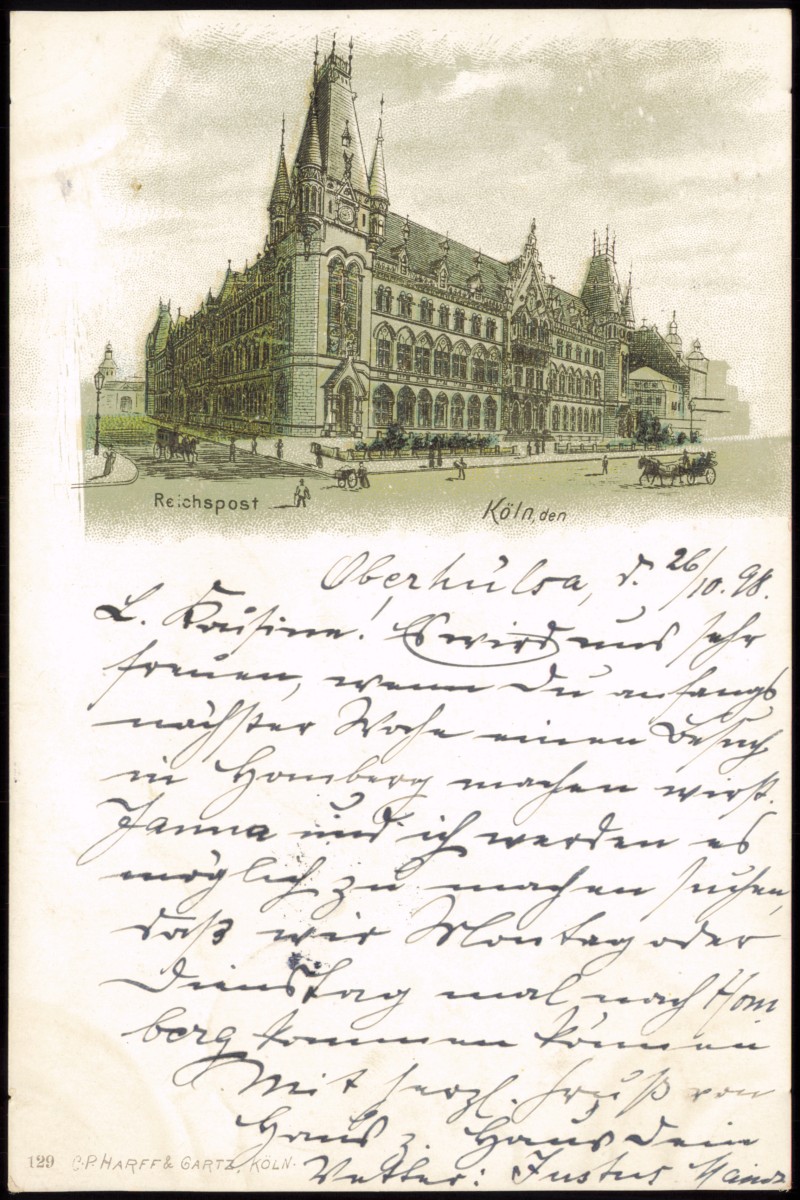 Reichspost
Köln, den
Oberhülsa, d. 26/10. 98.
L. Kousine! Es wird uns sehr
freuen, wenn Du anfangs
nächster Woche einen Besuch
in Homberg machen wirst.
Janna und ich werden es
möglich zu machen suchen,
daß wir Montag oder
Dienstag mal nach Hom
berg kommen können
Mit herzl. Gruß von
Haus z. Haus Dein
Vetter: Justus
129 C.P. HARFF & GARTZ, KÖLN.